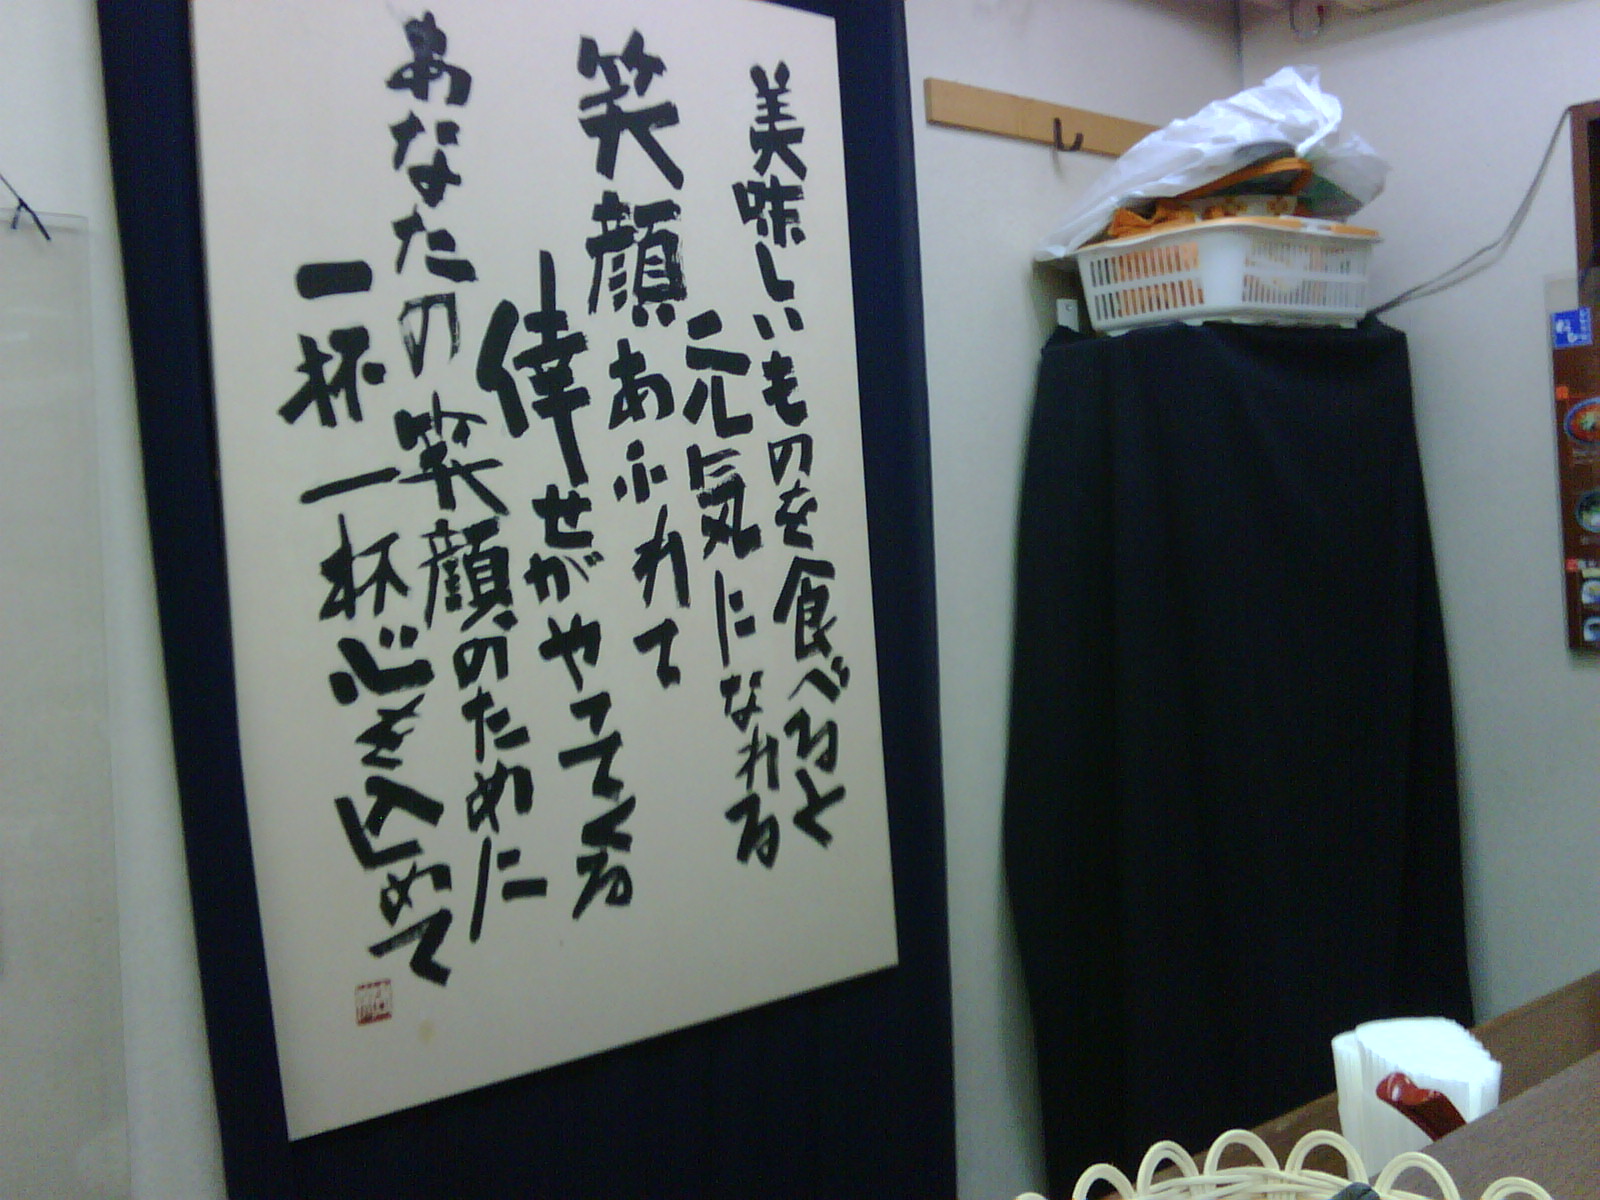 美味しいものを食べると
元気になれる
笑顔あふれて
幸せがやってくる
あなたの笑顔のために
一杯一杯心を込めて